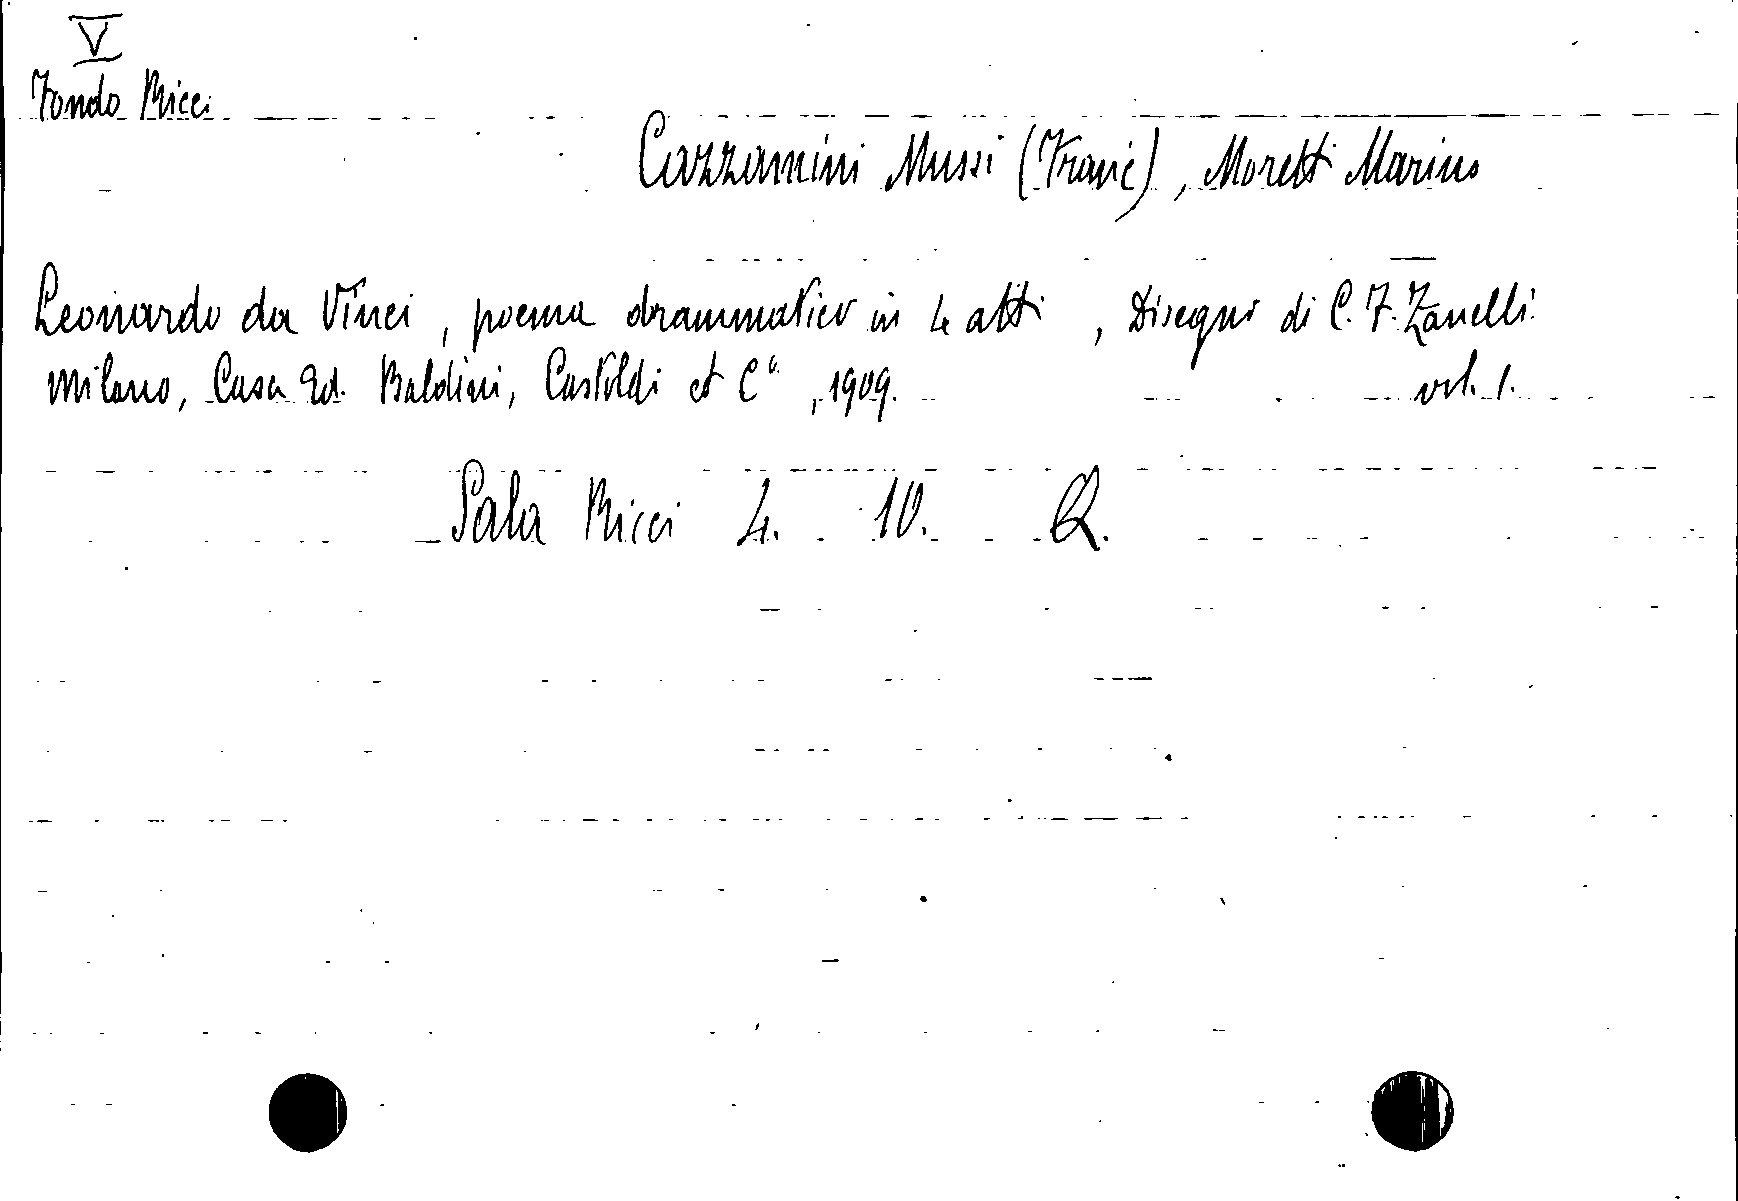 V
Fondo Ricci
Cazzamini Mussi (Franc), Moretti Marino
Leonardo da Vinci, poema drammatico in 4 atti, Disegni di C. F. Zanelli.
Milano, Casa Ed. Baldini, Castoldi et C°, 1909. vol. 1.
Sala Ricci 4. 10. Q.